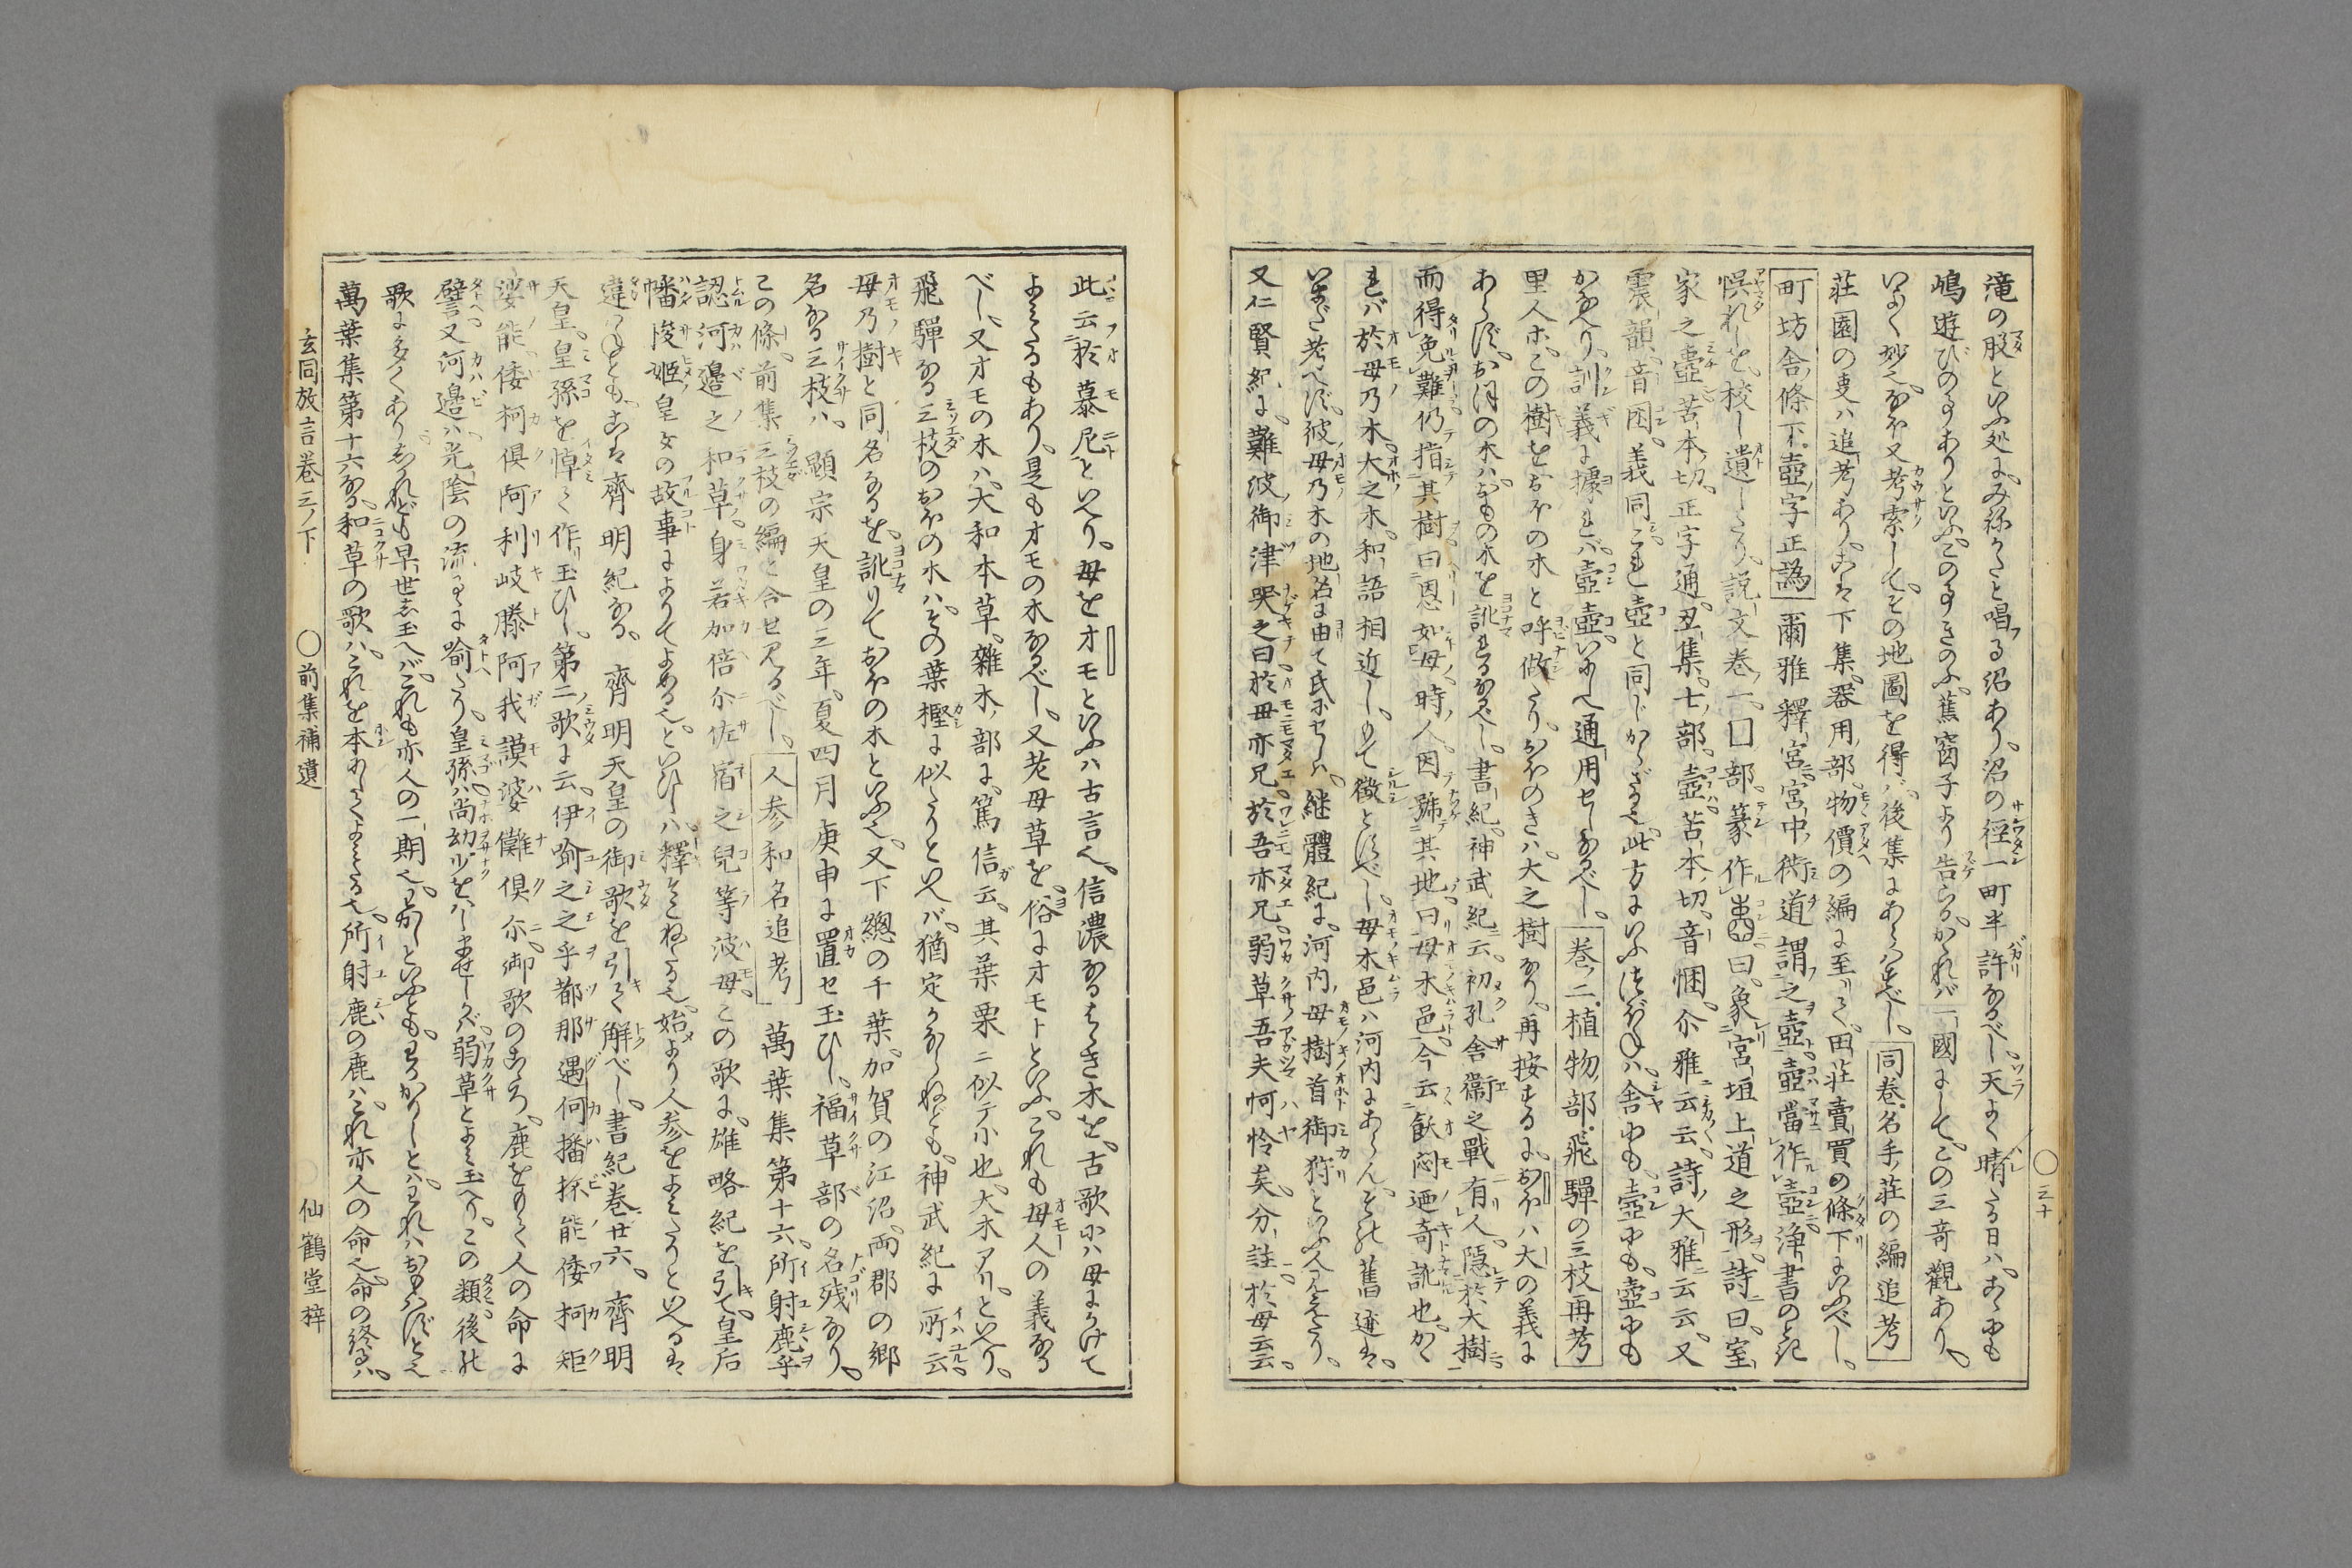 滝の股といふ処にみ祢うたと唱る沼あり。沼の徑一町半許なるべし。天よく晴たる日ハ。
嶋遊びの事ありといふ。このゆきのふ。蕉窗子より告らる。かゝれバ一國にして。この三奇觀あり。
いよく妙也。なほ又考索して。その地圖を得バ後集にあらはすべし。同巻名手荘の編追考
荘園の叓ハ追考あり。こは下集。器用部。物價の編に至りて。田荘賣買の條下にいふべし。
町坊舎條下。壺字正譌 爾雅釋宮。宮中衖道謂之壺。壺當作壼。淨書のとき
悞れしを。校し遺したり。説文巻一。囗部。篆作 曰。象宮垣上道之形。詩曰。室
家之壼。苦本切。正字通丑集。士部。壼苦本切。音悃。尒雅云云。詩大雅云云。又
震韻。音困。義同。これ壺と同じからざる也。此方にいふ
かなへり。訓義に據れバ。壼壺いにしへ通用せしなるべし。巻ノ二植物部飛驒の三枝再考
里人ホ。この樹をおほの木と呼做たり。おほのきハ。大之樹なり。再按するに。おほハ大の義に
あらず。おほの木ハ。おもの木を訛れるなるべし。書紀神武紀云。初孔舎衞之戰。有人隱於大樹
而得免難。仍指其樹曰恩如母。時人因號其地曰母木邑。今云飫悶廼奇訛也。かく
れバ於母乃木。大之木。和語相近し。もて徴とすべし。母木邑ハ河内にあらん。それ舊迹は。
いまだ考へず。彼母乃木の地名に由て氏にせしハ。継體紀に。河内母樹首御狩といふ人見えたり。
又仁賢紀に。難波御津哭之曰於母亦兄於吾亦兄弱草吾夫𢗰怜矣。分註。於母云云。
此云於慕尼といへり。母をオモといふハ古言也。信濃なるはゝき木を。古歌にハ母にかけて
よみたるもあり。是もオモの木なるべし。又茺母草を。俗にオモトといふ。これも母人の義なる
べし。又オモの木ハ。大和本草。雜木部に。篤信云。其葉栗ニ似テ小也。大木アリ。といへり。
飛驒なる三枝のおほの木ハ。その葉樫に似たりといへバ。猶定かならねども。神武紀に所云。
母乃樹と同名なるを。訛りておほの木といふ也。又下總の千葉。加賀の江沼。両郡の郷
名なる三枝ハ。顯宗天皇の三年。夏四月庚申に置せ玉ひし。福草部の名残なり。
この條。前集三枝の編と合せ見るべし。人参和名追考 萬葉集第十六。所射鹿乎
認河邊之和草身若加倍尒佐宿之兒等波母。この歌に。雄略紀を引て。皇后
幡俊姫皇女の故事によりてよめる也。といひしハ。釋
違へれども。こは齊明紀なる。齊明天皇の御歌を引て解べし。書紀巻廿六。齊明
天皇。皇孫を悼て作玉ひし。第二歌に云。伊喻之之乎都那遇何播杯能倭柯矩
娑能倭柯倶阿利岐騰阿我謨婆儺倶尒。御歌のこゝろ。鹿をもて人の命に
譬。又河邊ハ光陰の流るゝに喻たり。皇孫ハ尚幼少をハしませしかバ。弱草とよみ玉へり。この類後の
歌に多くあり。されども早世し玉へバ。これも亦人の一期也。
萬葉集第十六なる。和草の歌ハ。これを本わらくよみたる也。所射鹿の鹿ハ。これ亦人の命也。命の終るハ。
玄同放言巻三ノ下 〇前集補遺 仙鶴堂梓
〇三十